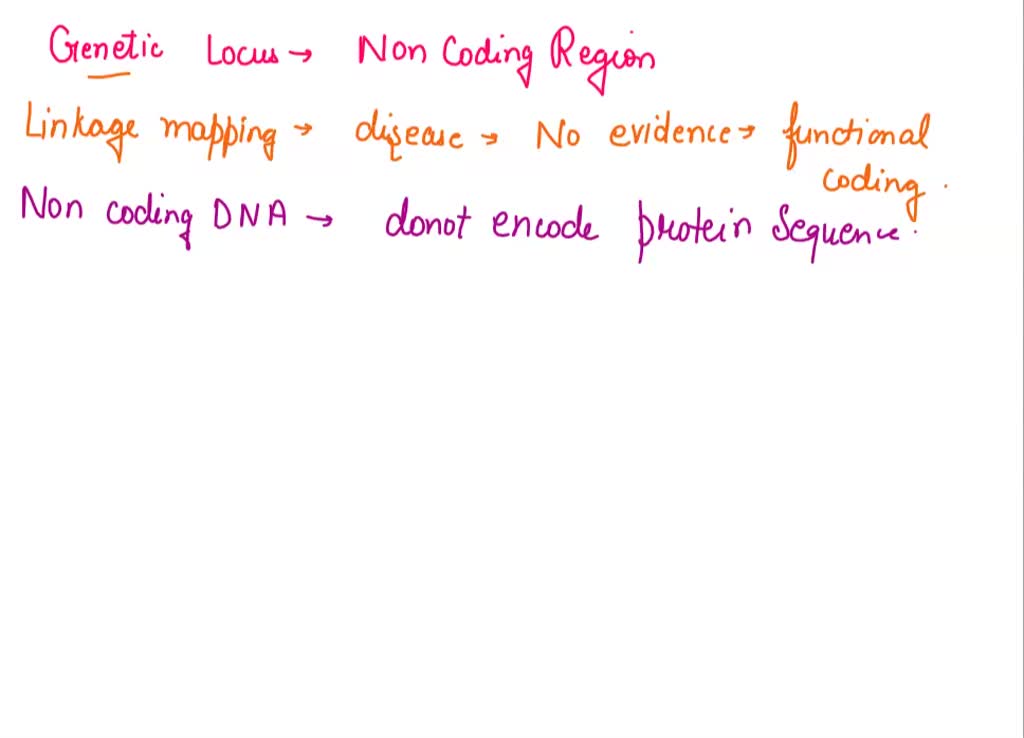 Genetic Locus → Non Coding Region
Linkage mapping → disease → No evidence → functional
coding.
Non coding DNA → donot encode protein sequence.